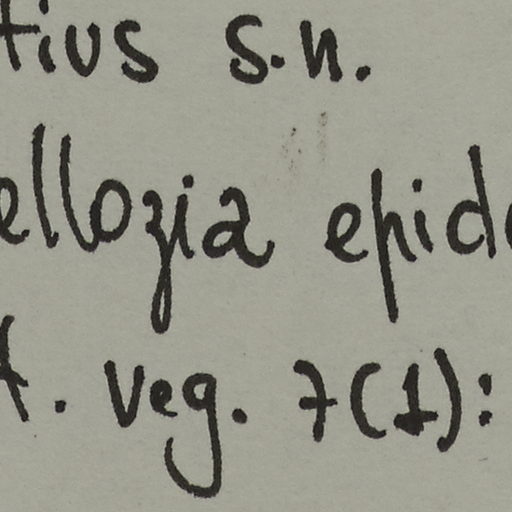 tius s.n.
ellozia epide
t. veg. 7(1):